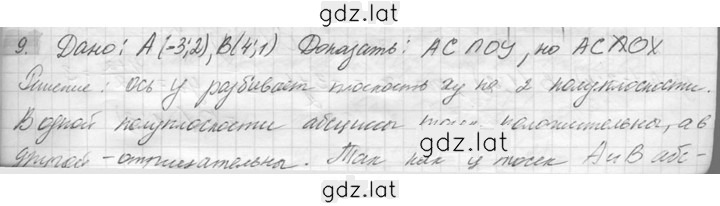 gdz.lat
9. Дано: A(-3;2), B(4;1) Доказать: AC ∩ OY, но AC ∩̸ OX
Решение: ось y разбивает плоскость xy на 2 полуплоскости.
В одной полуплоскости абсциссы точек положительны, а в
gdz.lat
другой - отрицательны. Так как у точек A и B абс-
gdz.lat